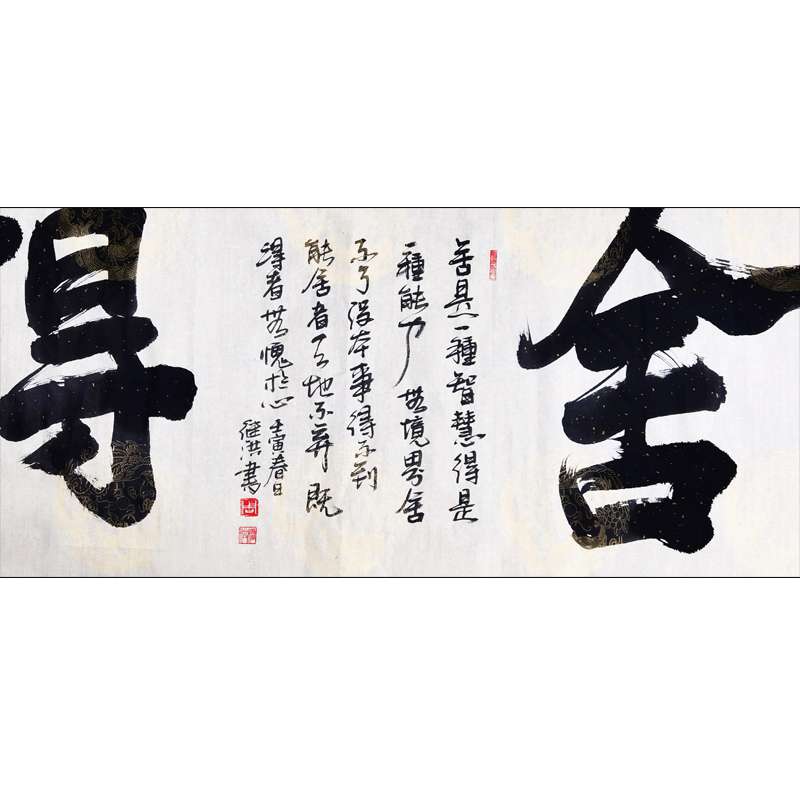 舍
舍是一種智慧得是
一種能力無境界舍
不了沒本事得不到
能舍者天地不棄既
得者無愧於心壬寅春日
洪書
得